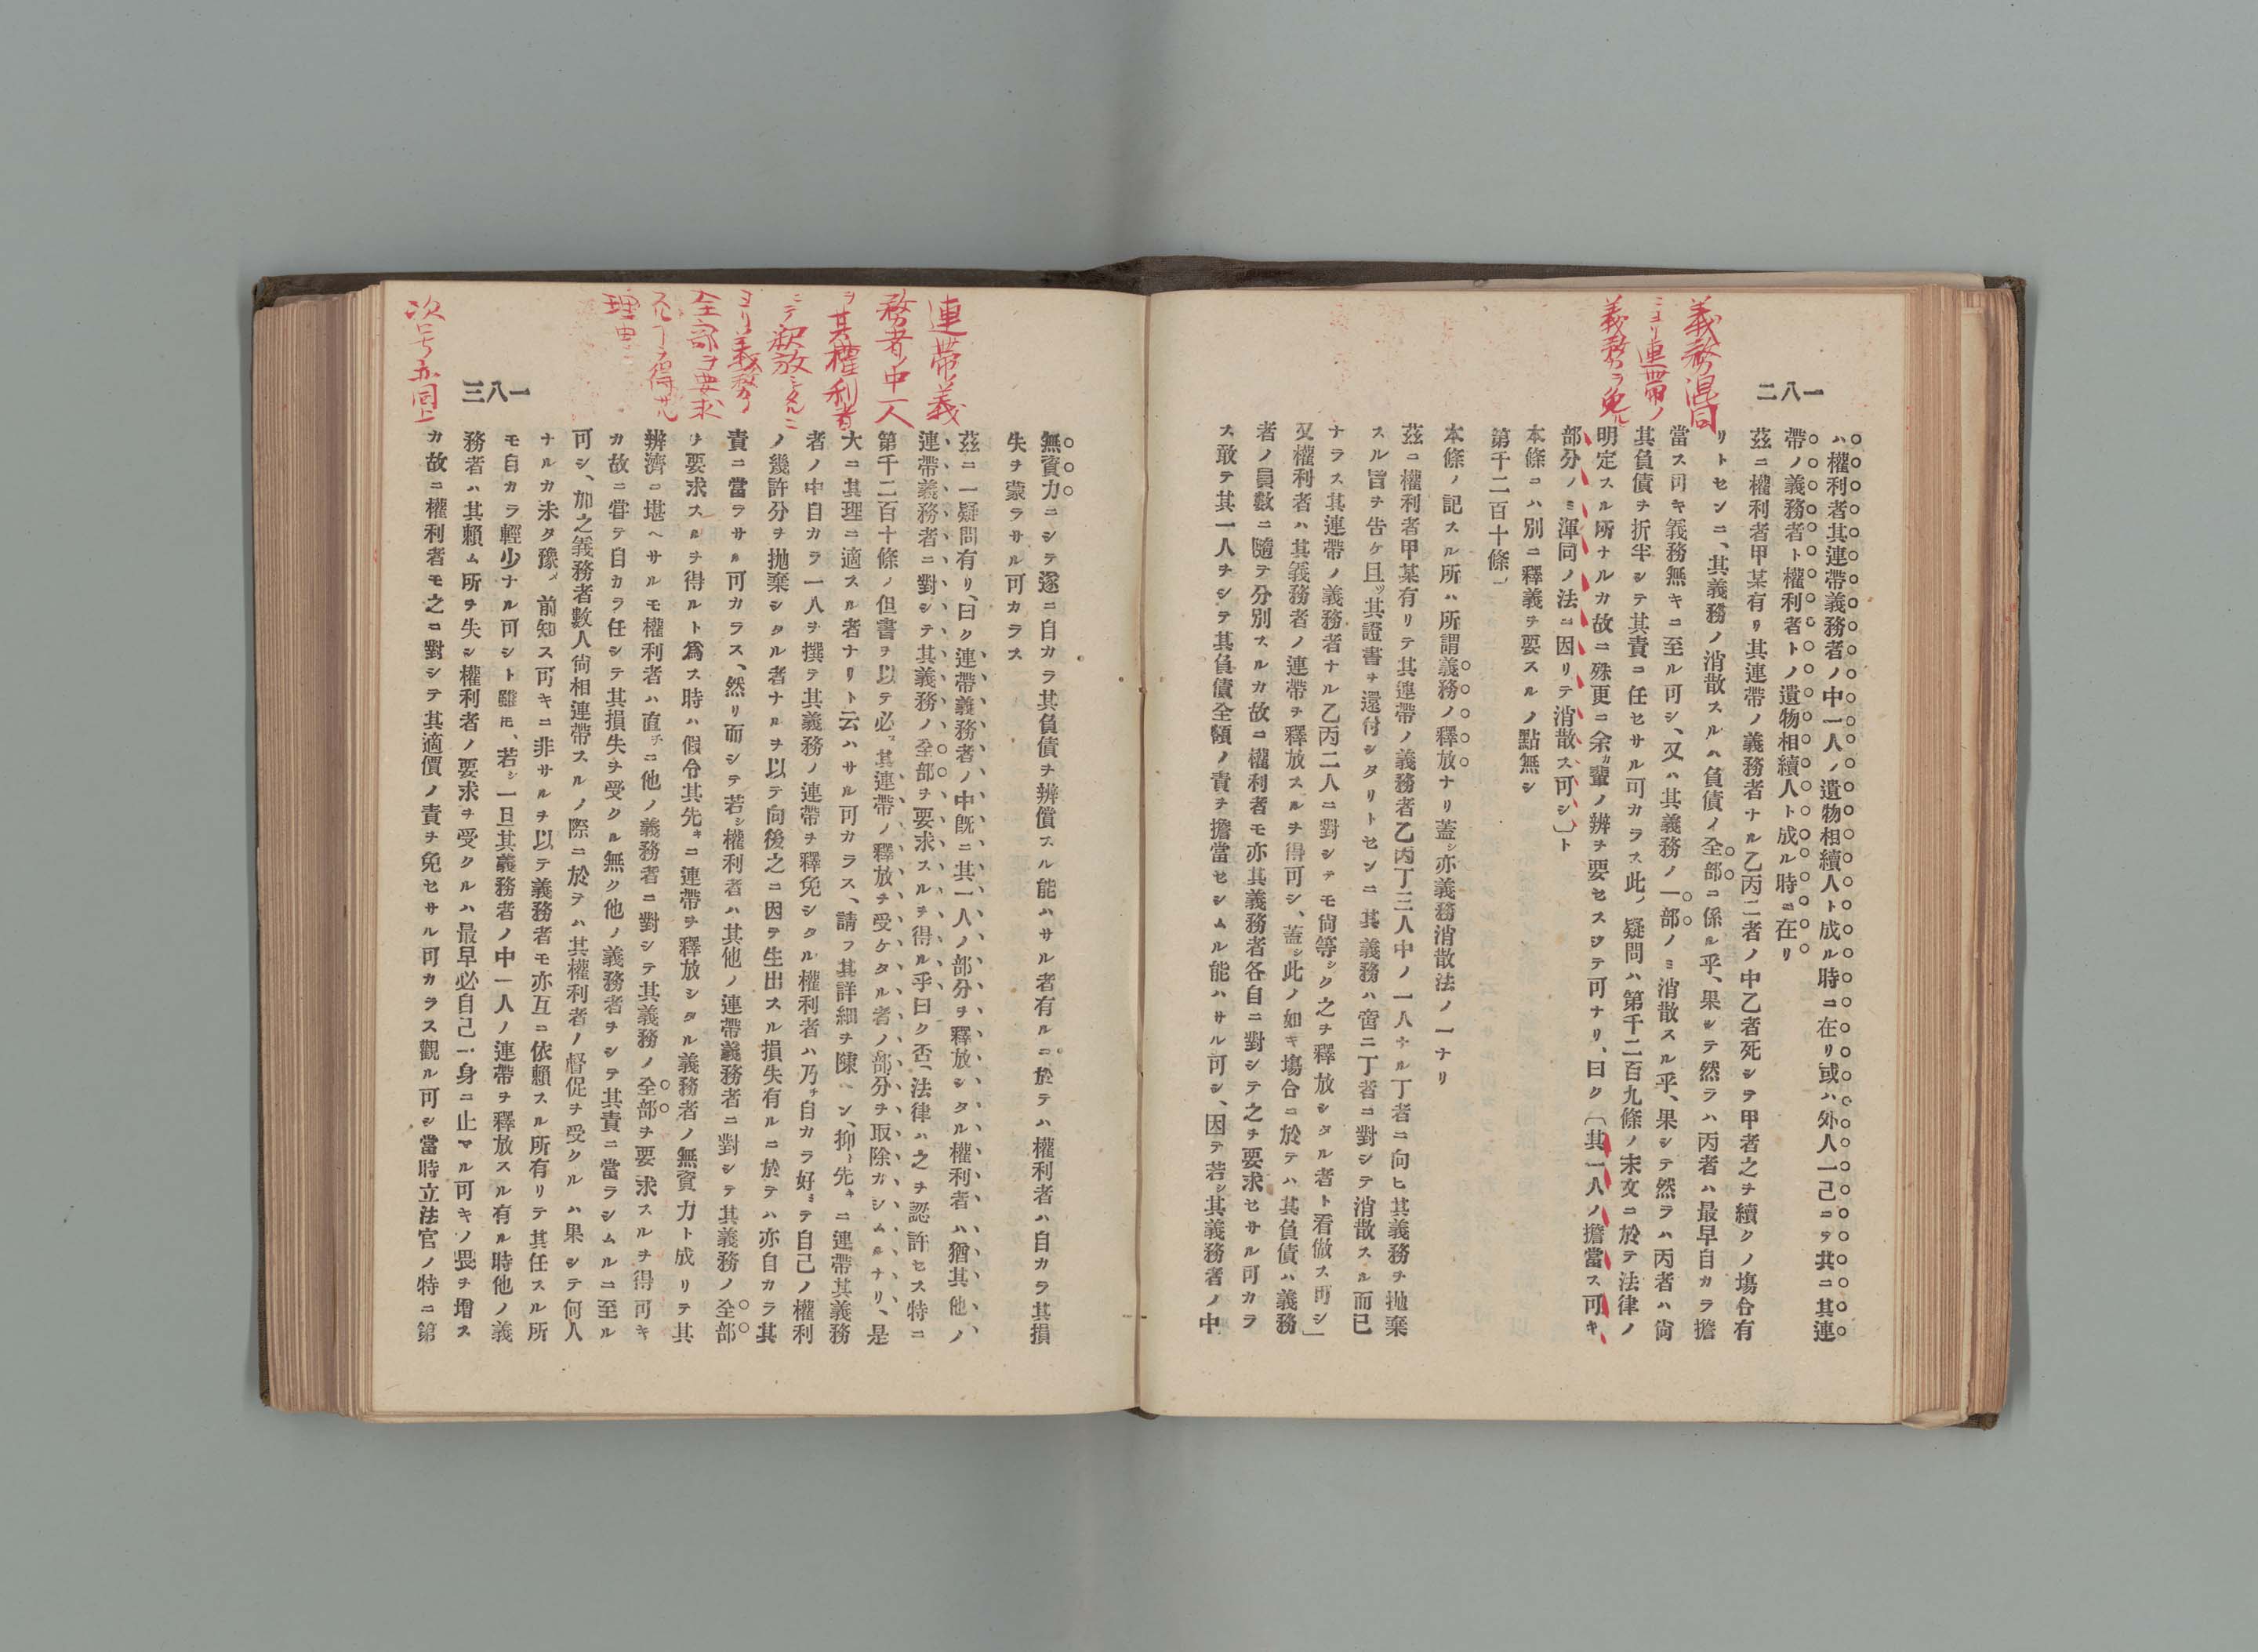 一八二
義務混同
ニヨリ連帶ノ
義務ヲ免ル
ハ權利者其連帶義務者ノ中一人ノ遺物相續人ト成ル時ニ在リ或ハ外人一己ニテ共ニ其連
帶ノ義務者ト權利者トノ遺物相續人ト成ル時ニ在リ
茲ニ權利者甲某有リ其連帶ノ義務者ナル乙丙二者ノ中乙者死シテ甲者之ヲ續クノ塲合有
リトセンニ、其義務ノ消散スルハ負債ノ全部ニ係ル乎、果シテ然ラハ丙者ハ最早自カラ擔
當ス可キ義務無キニ至ル可シ、又ハ其義務ノ一部ノミ消散スル乎、果シテ然ラハ丙者ハ尙
其負債ヲ折半シテ其責ニ任セサル可カラス此ノ疑問ハ第千二百九條ノ末文ニ於テ法律ノ
明定スル所ナルカ故ニ殊更ニ余カ輩ノ辨ヲ要セスシテ可ナリ、曰ク〔其一人ノ擔當ス可キ
部分ノミ渾同ノ法ニ因リテ消散ス可シ〕ト
本條ニハ別ニ釋義ヲ要スルノ點無シ
第千二百十條
本條ノ記スル所ハ所謂義務ノ釋放ナリ蓋シ亦義務消散法ノ一ナリ
茲ニ權利者甲某有リテ其連帶ノ義務者乙丙丁三人中ノ一人ナル丁者ニ向ヒ其義務ヲ抛棄
スル旨ヲ告ケ且ツ其證書ヲ還付シタリトセンニ其義務ハ啻ニ丁者ニ對シテ消散スル而已
ナラス其連帶ノ義務者ナル乙丙二人ニ對シテモ尙等シク之ヲ釋放シタル者ト看做ス可シ」
又權利者ハ其義務者ノ連帶ヲ釋放スルヲ得可シ、蓋シ此ノ如キ塲合ニ於テハ其負債ハ義務
者ノ員數ニ隨テ分別スルカ故ニ權利者モ亦其義務者各自ニ對シテ之ヲ要求セサル可カラ
ス敢テ其一人ヲシテ其負債全額ノ責ヲ擔當セシムル能ハサル可シ、因テ若シ其義務者ノ中
一八三
連帶義
務者ノ中一人
ヲ其權利者
ニテ釈放シタルニ
ヨリ義務ノ
全部ヲ要求
スル丁ヲ得サル
理由
次号亦同上
無資力ニシテ遂ニ自カラ其負債ヲ辨償スル能ハサル者有ルニ於テハ權利者ハ自カラ其損
失ヲ蒙ラサル可カラス
茲ニ一疑問有リ、曰ク連帶義務者ノ中旣ニ其一人ノ部分ヲ釋放シタル權利者ハ猶其他ノ
連帶義務者ニ對シテ其義務ノ全部ヲ要求スルヲ得ル乎曰ク否、法律ハ之ヲ認許セス特ニ
第千二百十條ノ但書ヲ以テ必ス其連帶ノ釋放ヲ受ケタル者ノ部分ヲ取除カシムルナリ、是
大ニ其理ニ適スル者ナリト云ハサル可カラス、請フ其詳細ヲ陳ヘン、抑先キニ連帶其義務
者ノ中自カラ一人ヲ撰テ其義務ノ連帶ヲ釋免シタル權利者ハ乃チ自カラ好ミテ自己ノ權利
ノ幾許分ヲ抛棄シタル者ナルヲ以テ向後之ニ因テ生出スル損失有ルニ於テハ亦自カラ其
責ニ當ラサル可カラス、然リ而シテ若シ權利者ハ其他ノ連帶義務者ニ對シテ其義務ノ全部
ヲ要求スルヲ得ルト爲ス時ハ假令其先キニ連帶ヲ釋放シタル義務者ノ無資力ト成リテ其
辨濟ニ堪ヘサルモ權利者ハ直チニ他ノ義務者ニ對シテ其義務ノ全部ヲ要求スルヲ得可キ
カ故ニ嘗テ自カラ任シテ其損失ヲ受クル無ク他ノ義務者ヲシテ其責ニ當ラシムルニ至ル
可シ、加之義務者數人尙相連帶スルノ際ニ於テハ其權利者ノ督促ヲ受クルハ果シテ何人
ナルカ未タ豫メ前知ス可キニ非サルヲ以テ義務者モ亦互ニ依賴スル所有リテ其任スル所
モ自カラ輕少ナル可シト雖𪜈、若シ一旦其義務者ノ中一人ノ連帶ヲ釋放スル有ル時他ノ義
務者ハ其賴ム所ヲ失シ權利者ノ要求ヲ受クルハ最早必自己一身ニ止マル可キノ畏ヲ增ス
カ故ニ權利者モ之ニ對シテ其適價ノ責ヲ免セサル可カラス觀ル可シ當時立法官ノ特ニ第